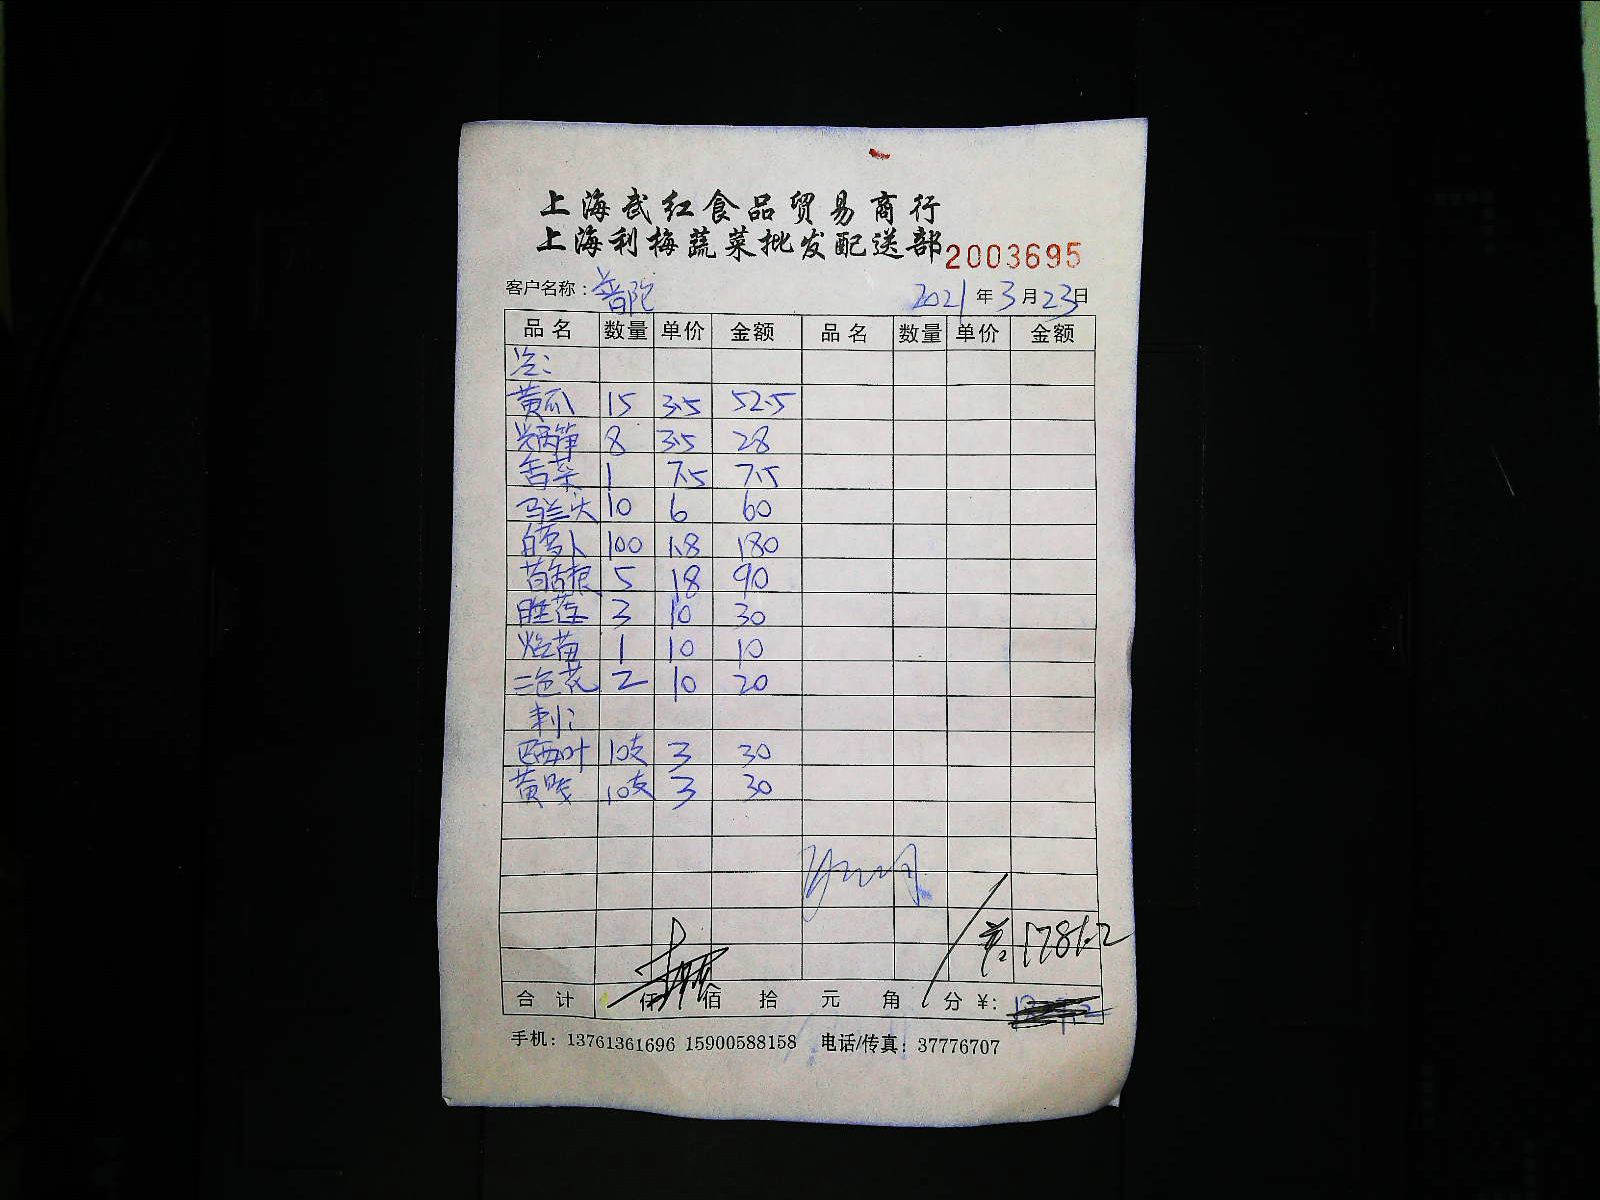 上海武红食品贸易商行
上海利梅蔬菜批发配送部 2003695
客户名称：普陀 2021年3月23日
品名 数量 单价 金额 品名 数量 单价 金额
冷：
黄瓜 15 3.5 52.5
8 3.5 28
苦菜 1 7.5 7.5
马兰头 10 6 60
白萝卜 100 1.8 180
5 18 90
3 10 30
苗 1 10 10
三色花 2 10 20
刺：
叶 10支 3 30
黄 10支 3 30
1781.2
合计 佰 拾 元 角 分 ¥：
手机：13761361696 15900588158 电话/传真：37776707